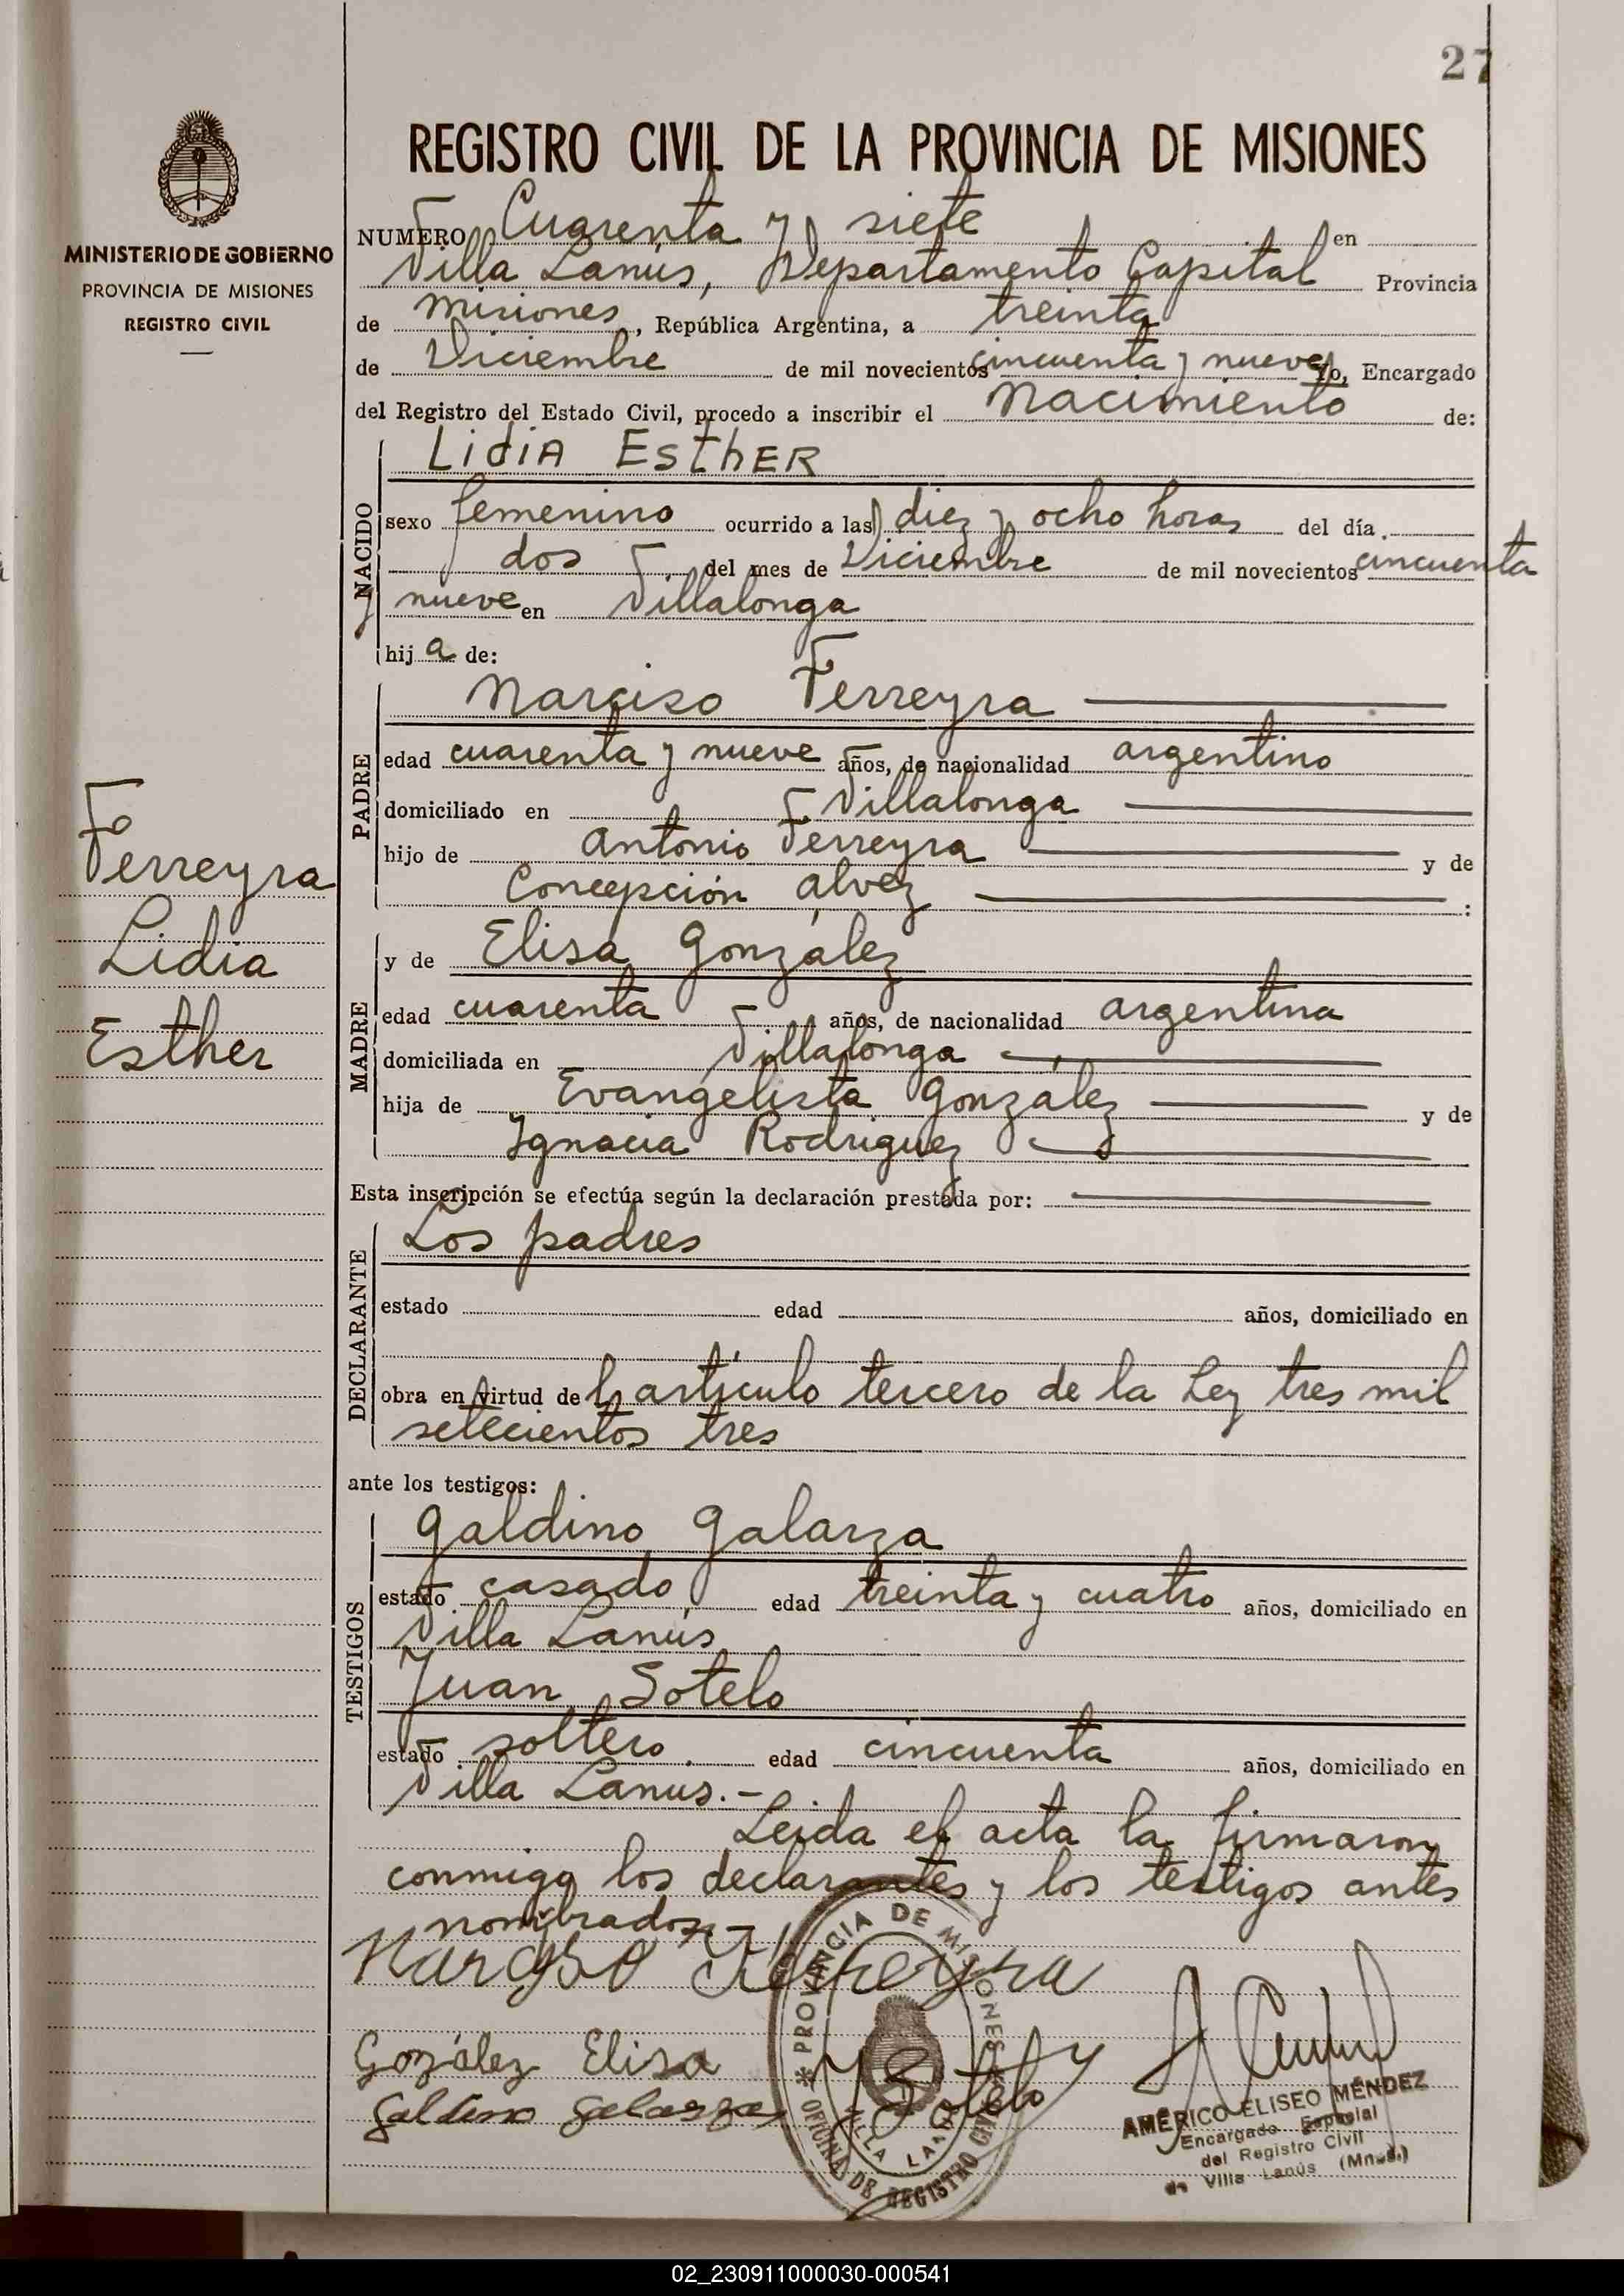 27
REGISTRO CIVIL DE LA PROVINCIA DE MISIONES
MINISTERIO DE GOBIERNO
PROVINCIA DE MISIONES
REGISTRO CIVIL
NUMERO Cuarenta y siete en
Villa Lanús, Departamento Capital Provincia
de Misiones, República Argentina, a treinta
de Diciembre de mil novecientos cincuenta y nueve Yo, Encargado
del Registro del Estado Civil, procedo a inscribir el Nacimiento de:
NACIDO
Lidia Esther
sexo femenino ocurrido a las diez y ocho horas del día
dos del mes de Diciembre de mil novecientos cincuenta
y nueve en Villalonga
hija de:
PADRE
Narciso Ferreyra
edad cuarenta y nueve años, de nacionalidad argentino
domiciliado en Villalonga
hijo de Antonio Ferreyra y de
Concepción Alvez :
Ferreyra
Lidia
Esther
MADRE
y de Elisa González
edad cuarenta años, de nacionalidad argentina
domiciliada en Villalonga
hija de Evangelista González y de
Ignacia Rodriguez
Esta inscripción se efectúa según la declaración prestada por:
DECLARANTE
Los padres
estado edad años, domiciliado en
obra en virtud del artículo tercero de la Ley tres mil
setecientos tres
ante los testigos:
TESTIGOS
Galdino Galarza
estado casado edad treinta y cuatro años, domiciliado en
Villa Lanús
Juan Sotelo
estado soltero edad cincuenta años, domiciliado en
Villa Lanus.-
Leida el acta la firmaron
conmigo los declarantes y los testigos antes
nombrados.-
Narciso Ferreyra
Gozález Elisa
Galdino Galarza
J Sotelo
PROVINCIA DE MISIONES
OFICINA DE REGISTRO CIVIL
VILLA LANUS
AMÉRICO ELISEO MÉNDEZ
Encargado Especial
del Registro Civil
de Villa Lanús (Mnes.)
02_230911000030-000541